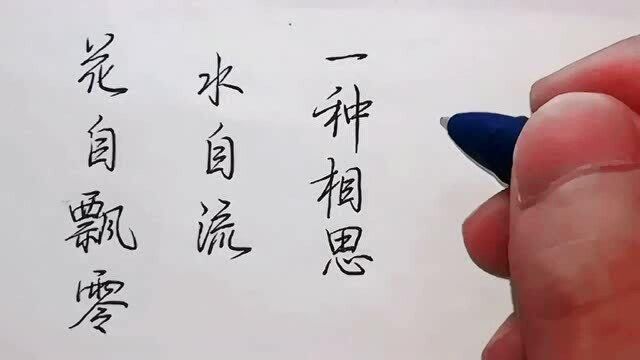 花自飄零
水自流
一种相思